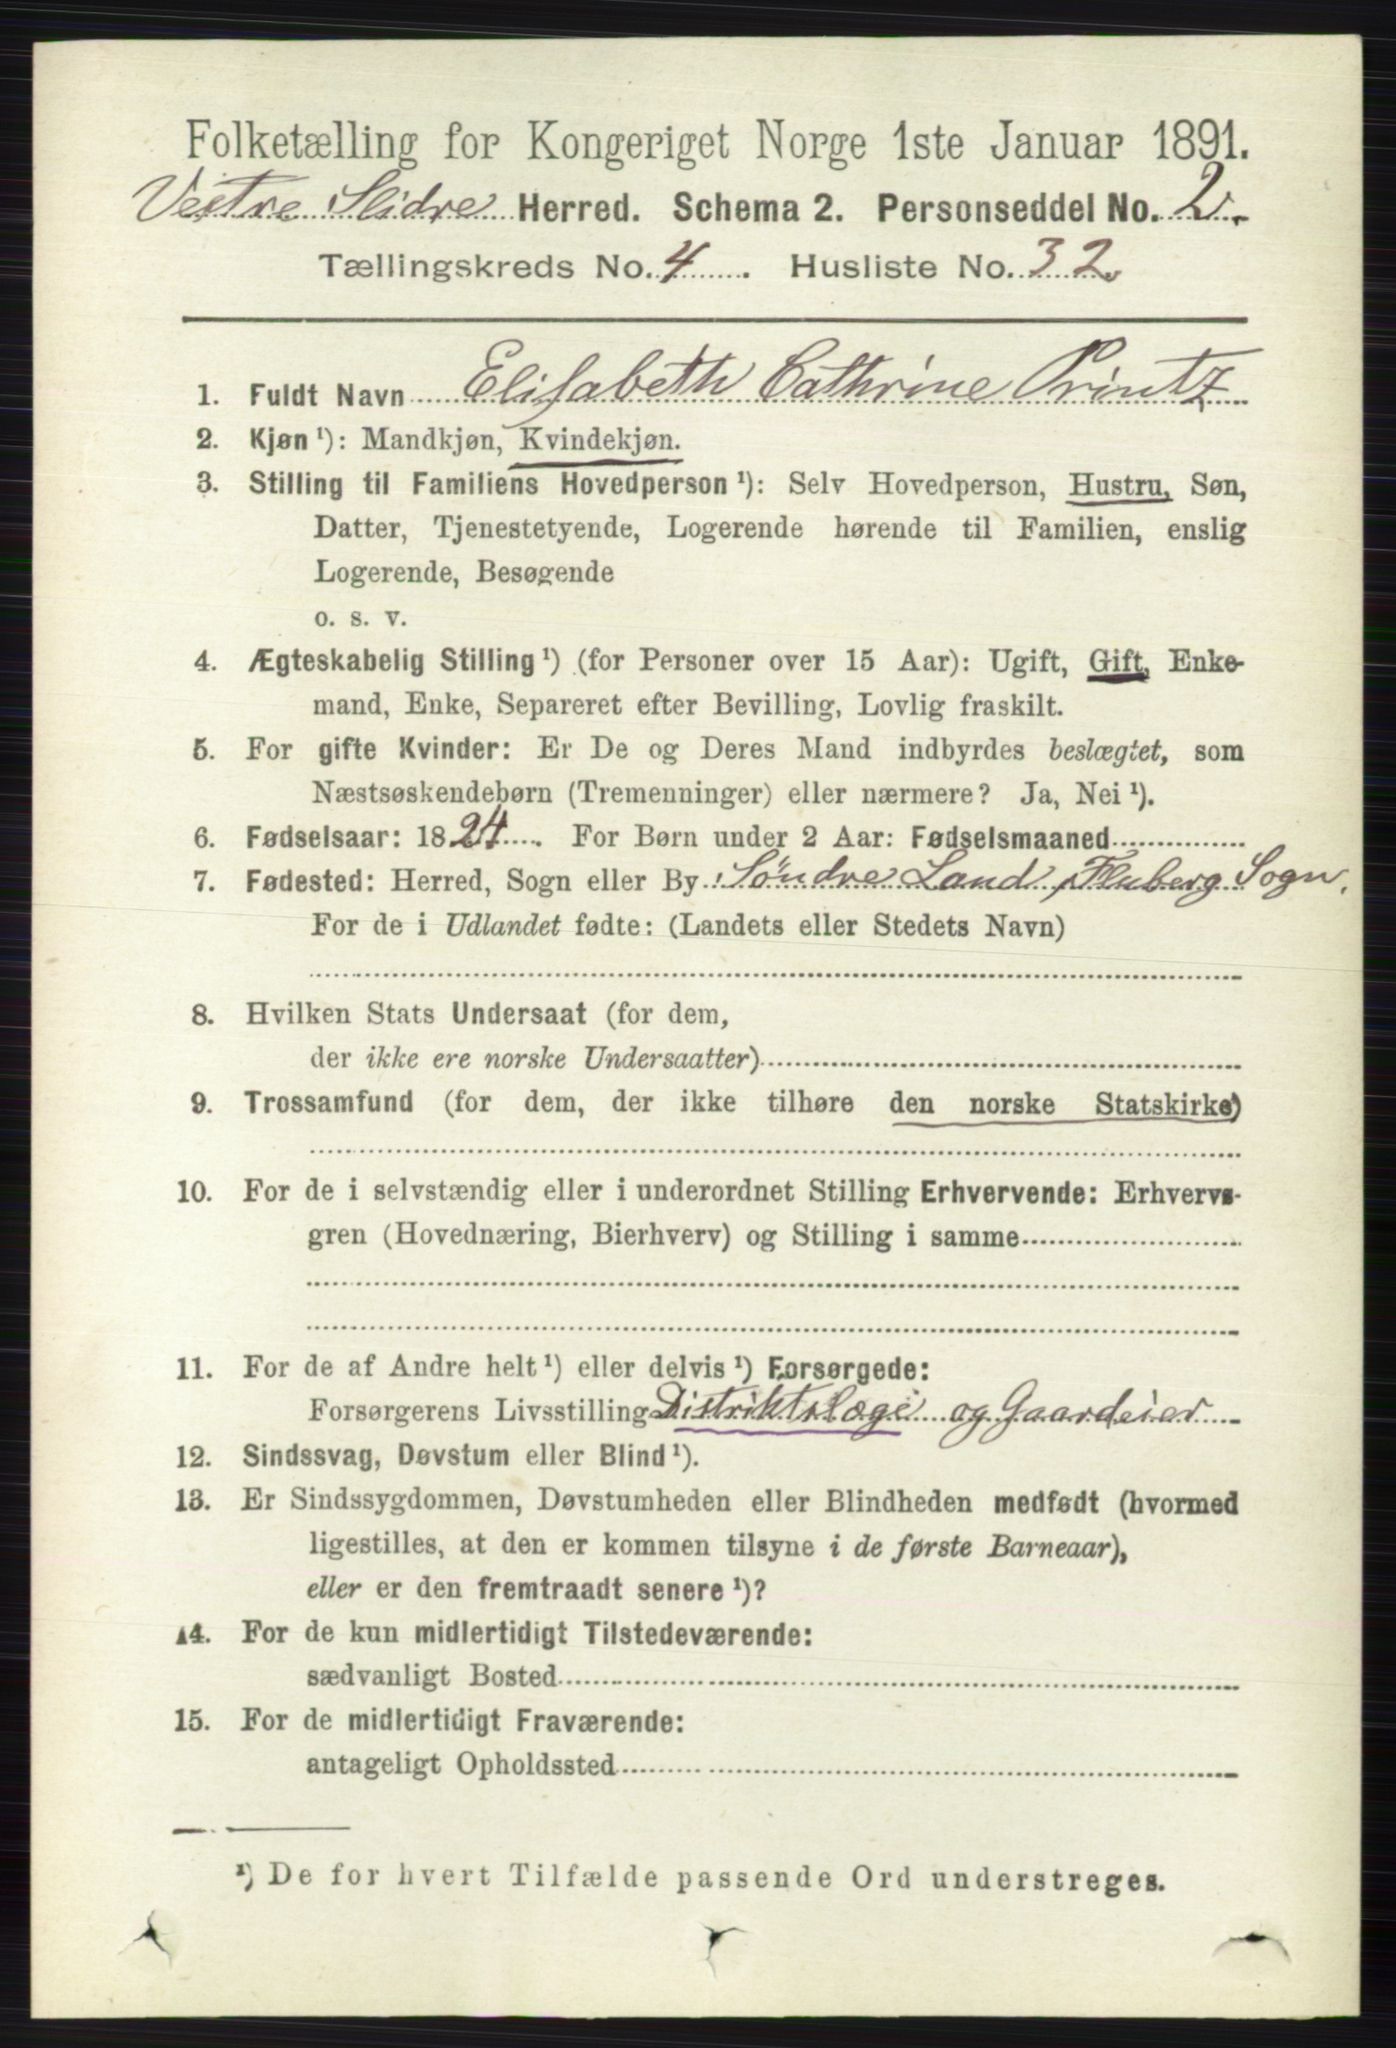 Folketælling for Kongeriget Norge 1ste Januar 1891.
Vestre Slidre Herred. Schema 2. Personseddel No. 2.
Tællingskreds No. 4. Husliste No. 32
1. Fuldt Navn Elisabeth Cathrine Printz
2. Kjøn ¹): Mandkjøn, Kvindekjøn.
3. Stilling til Familiens Hovedperson ¹): Selv Hovedperson, Hustru, Søn,
Datter, Tjenestetyende, Logerende hørende til Familien, enslig
Logerende, Besøgende
o. s. v.
4. Ægteskabelig Stilling ¹) (for Personer over 15 Aar): Ugift, Gift, Enke-
mand, Enke, Separeret efter Bevilling, Lovlig fraskilt.
5. For gifte Kvinder: Er De og Deres Mand indbyrdes beslægtet, som
Næstsøskendebørn (Tremenninger) eller nærmere? Ja, Nei ¹).
6. Fødselsaar: 1824. For Børn under 2 Aar: Fødselsmaaned
7. Fødested: Herred, Sogn eller By Söndre Land, Fluberg Sogn.
For de i Udlandet fødte: (Landets eller Stedets Navn)
8. Hvilken Stats Undersaat (for dem,
der ikke ere norske Undersaatter)
9. Trossamfund (for dem, der ikke tilhøre den norske Statskirke)
10. For de i selvstændig eller i underordnet Stilling Erhvervende: Erhvervs-
gren (Hovednæring, Bierhverv) og Stilling i samme
11. For de af Andre helt ¹) eller delvis ¹) Forsørgede:
Forsørgerens Livsstilling Distriktslæge og Gaardeier
12. Sindssvag, Døvstum eller Blind ¹).
13. Er Sindssygdommen, Døvstumheden eller Blindheden medfødt (hvormed
ligestilles, at den er kommen tilsyne i de første Barneaar),
eller er den fremtraadt senere ¹)?
14. For de kun midlertidigt Tilstedeværende:
sædvanligt Bosted
15. For de midlertidigt Fraværende:
antageligt Opholdssted
¹) De for hvert Tilfælde passende Ord understreges.